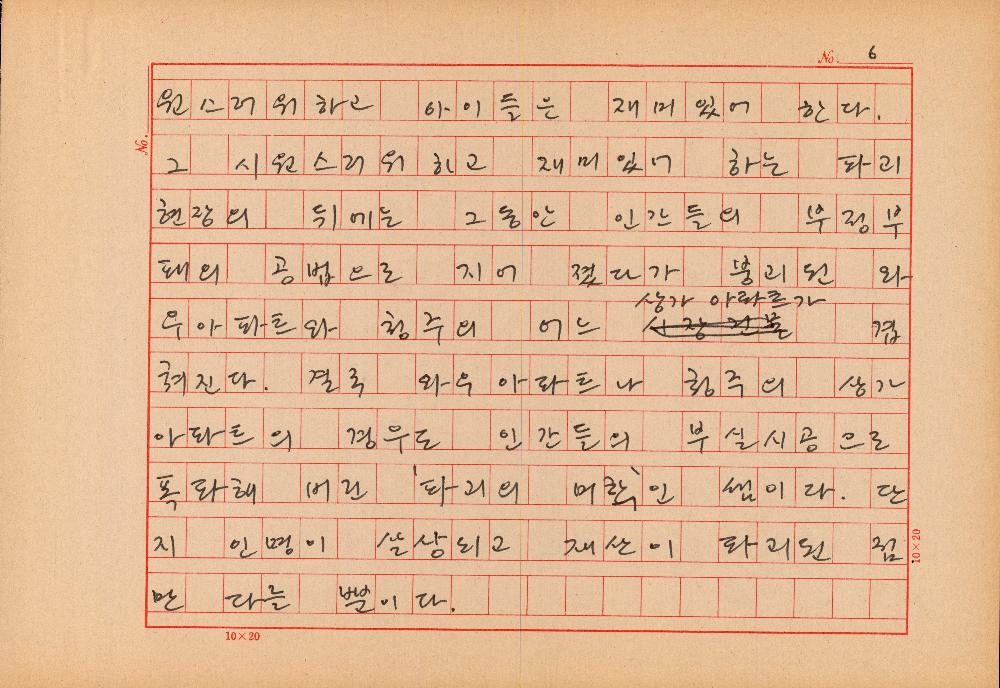 No. 6
No.
원스러워하고 아이들은 재미있어 한다.
그 시원스러워 하고 재미있어 하는 파괴
현장의 뒤에는 그동안 인간들의 부정부
패의 공법으로 지어 졌다가 붕괴된 와
상가 아파트가
우아파트와 청주의 어느 겹
쳐진다. 결국 와우아파트나 청주의 상가
아파트의 경우도 인간들의 부실시공으로
폭파해 버린 '파괴의 미학'인 셈이다. 단
지 인명이 살상되고 재산이 파괴된 점
만 다를 뿐이다.
10×20
10×20